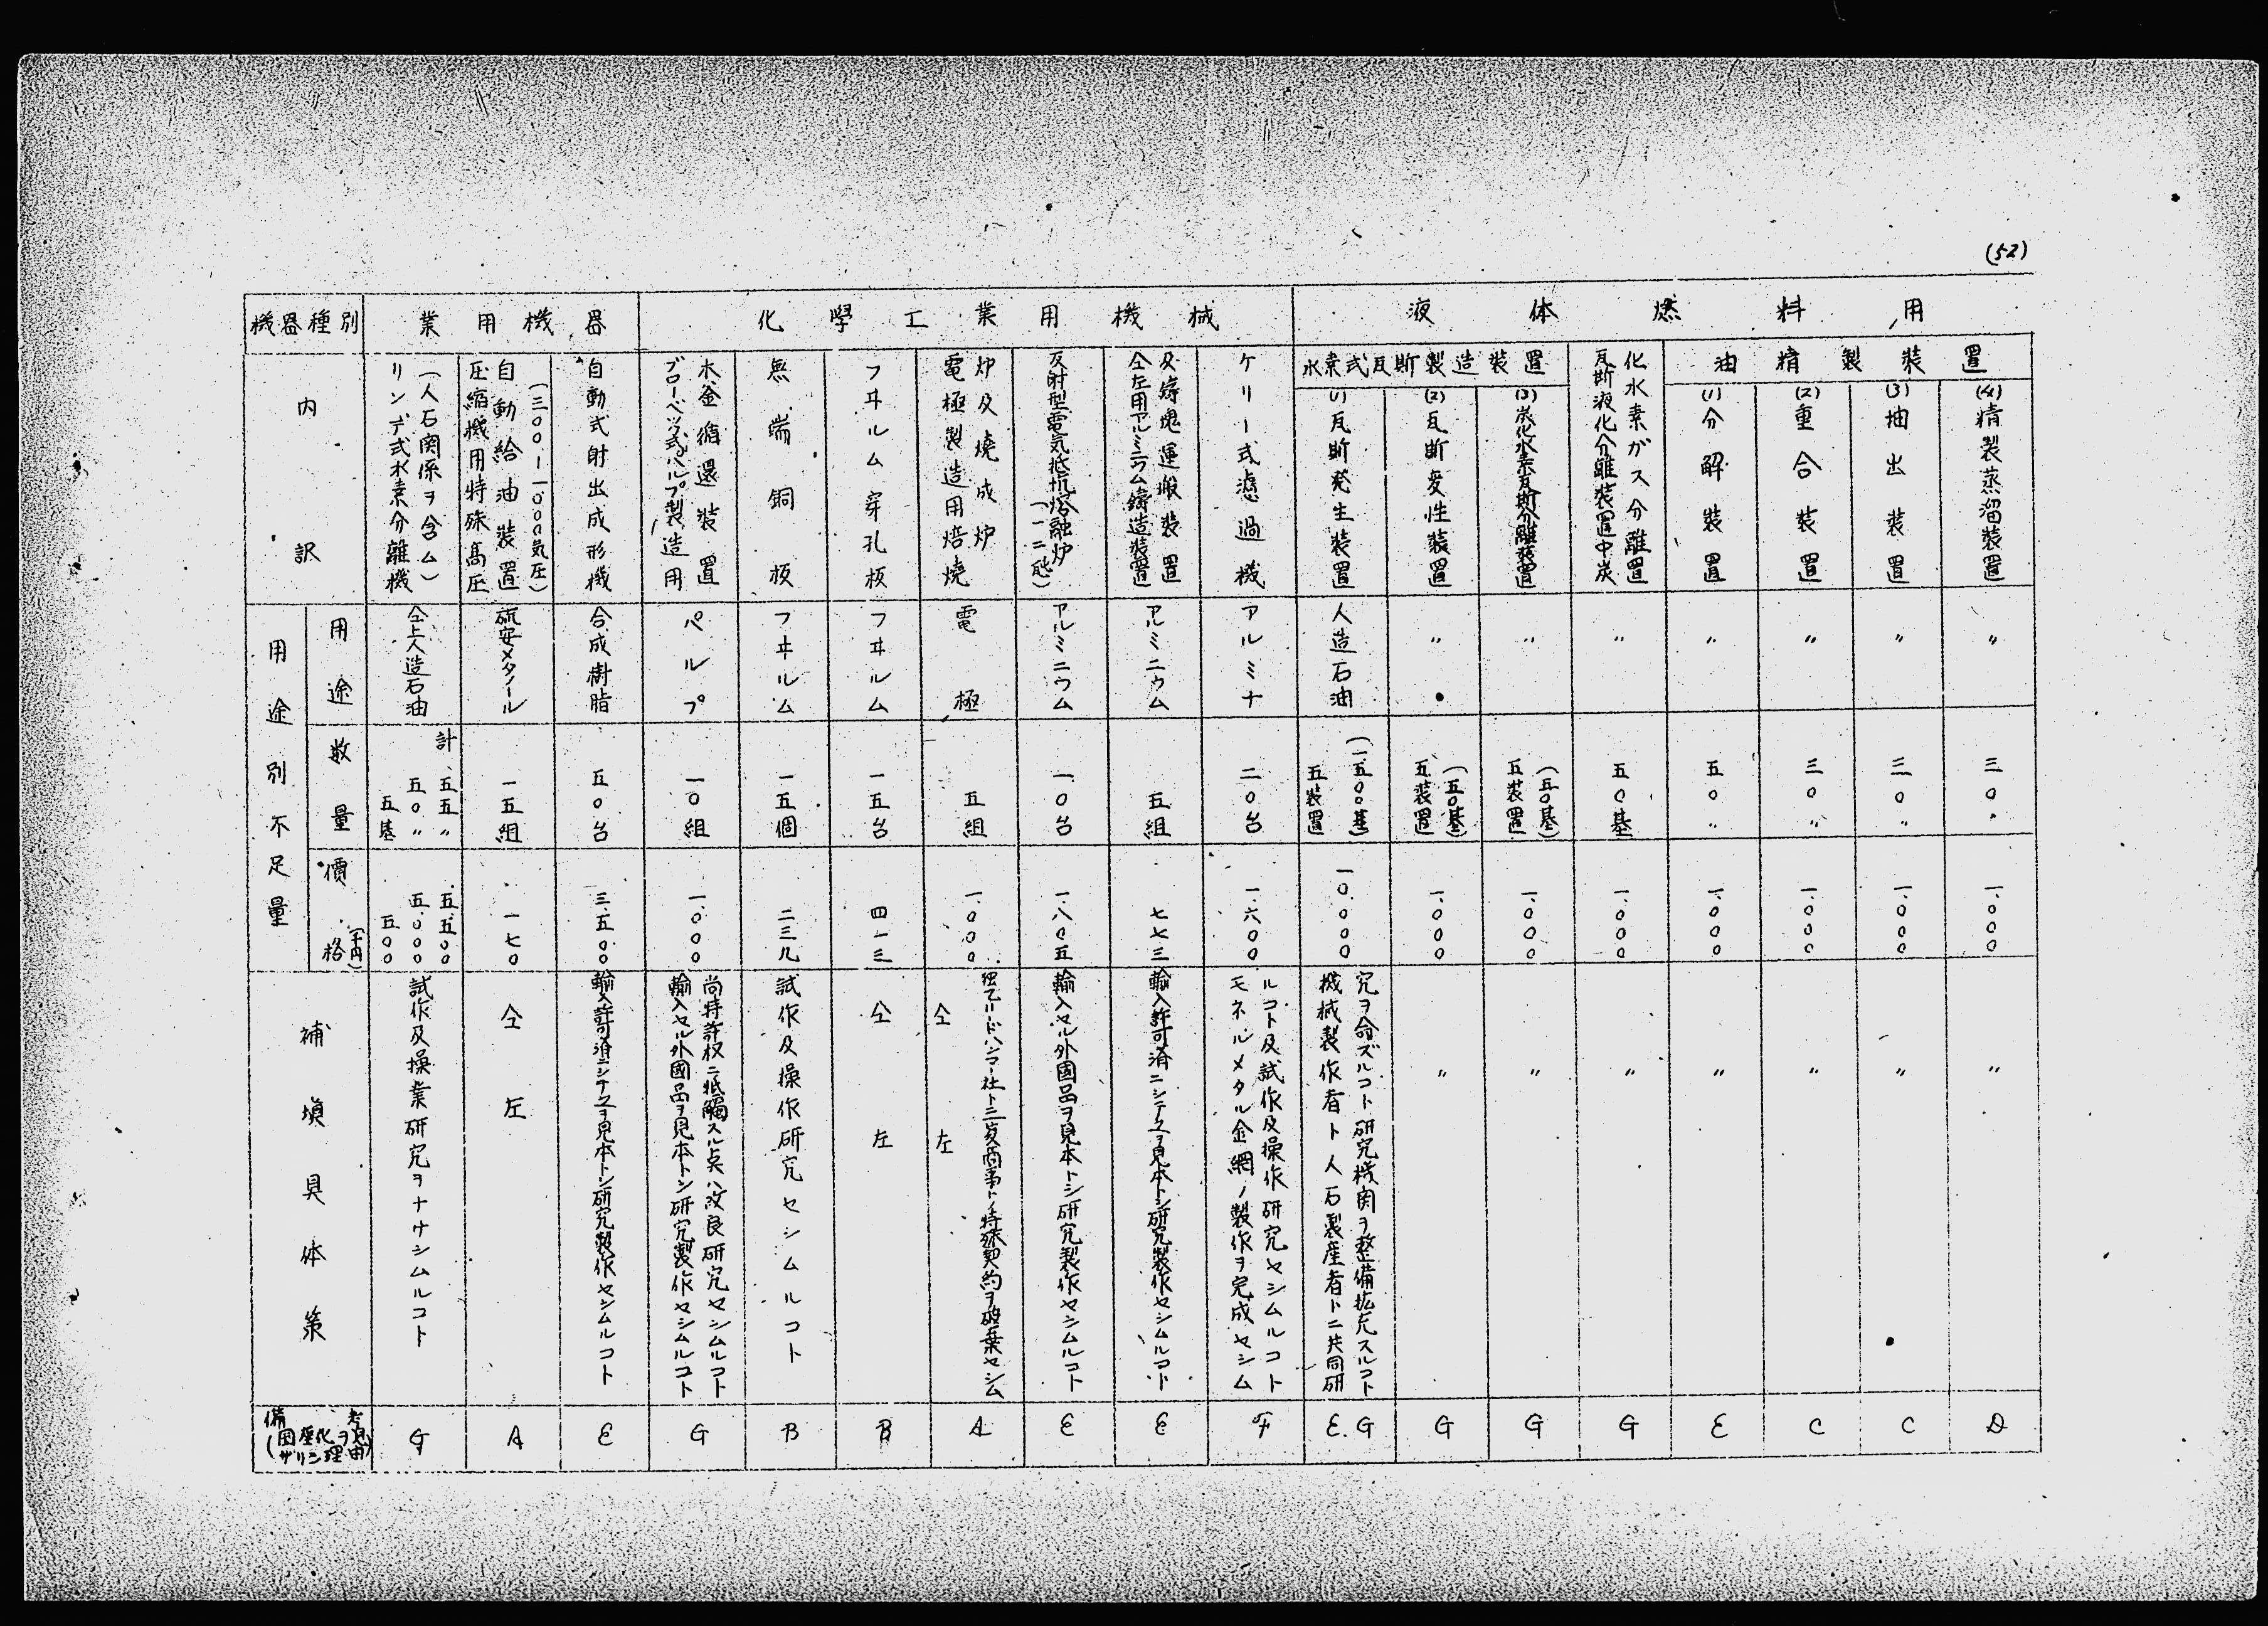 (52)
機器種別
内訳
用途別不足量
用途
数量
價格(千円)
補塡具体策
備考
(国産化ヲ見
ザリシ理由)
業用機器
リンデ式水素分離機
(人石関係ヲ含ム)
仝上人造石油
五基
五〇〃
計五五〃
五〇〇
五.〇〇〇
五.五〇〇
試作及操業研究ヲナサシムルコト
G
圧縮機用特殊高圧
自動給油装置
(三〇〇ー一〇〇〇気圧)
硫安メタノール
一五組
一七〇
仝左
A
自動式射出成形機
合成樹脂
五〇台
三.五〇〇
輸入許可済ニシテ之ヲ見本トシ研究製作セシムルコト
E
化學工業用機械
式パルプ製造用
木釜循還装置
パルプ
一〇組
一.〇〇〇
輸入セル外國品ヲ見本トシ研究製作セシムルコト
尚特許权ニ牴觸スル点ハ改良研究セシムルコト
G
無端銅板
フヰルム
一五個
二三九
試作及操作研究セシムルコト
B
フヰルム穿孔板
フヰルム
一五台
四一三
仝左
B
電極製造用焙焼
炉及燒成炉
電極
五組
一.〇〇〇
仝左
独乙リードハンマー社ト三菱商事トノ特殊契約ヲ破棄セシム
A
反射型電気抵抗熔融炉
(一ー二瓲)
アルミニウム
一〇台
一.八〇五
輸入セル外國品ヲ見本トシ研究製作セシムルコト
E
仝左用アルミニウム鑄造装置
及鑄塊運搬装置
アルミニウム
五組
七七三
輸入許可済ニシテ之ヲ見本トシ研究製作セシムルコト
E
ケリー式濾過機
アルミナ
二〇台
一.六〇〇
モネルメタル金網ノ製作ヲ完成セシム
ルコト及試作及操作研究セシムルコト
F
液体燃料用
水素式瓦斯製造装置
(1)瓦斯発生装置
人造石油
五装置
(一五〇〇基)
一〇.〇〇〇
機械製作者ト人石製産者トニ共同研
究ヲ命ズルコト研究機関ヲ整備拡充スルコト
E.G
(2)瓦斯変性装置
〃
五装置
(五〇基)
一.〇〇〇
〃
G
(3)炭化水素瓦斯分離装置
〃
五装置
(五〇基)
一.〇〇〇
〃
G
瓦斯液化分離装置中炭
化水素ガス分離置
〃
五〇基
一.〇〇〇
〃
G
油精製装置
(1)分解装置
〃
五〇〃
一.〇〇〇
〃
E
(2)重合装置
〃
三〇〃
一.〇〇〇
〃
C
(3)抽出装置
〃
三〇〃
一.〇〇〇
〃
C
(4)精製蒸溜装置
〃
三〇〃
一.〇〇〇
〃
D